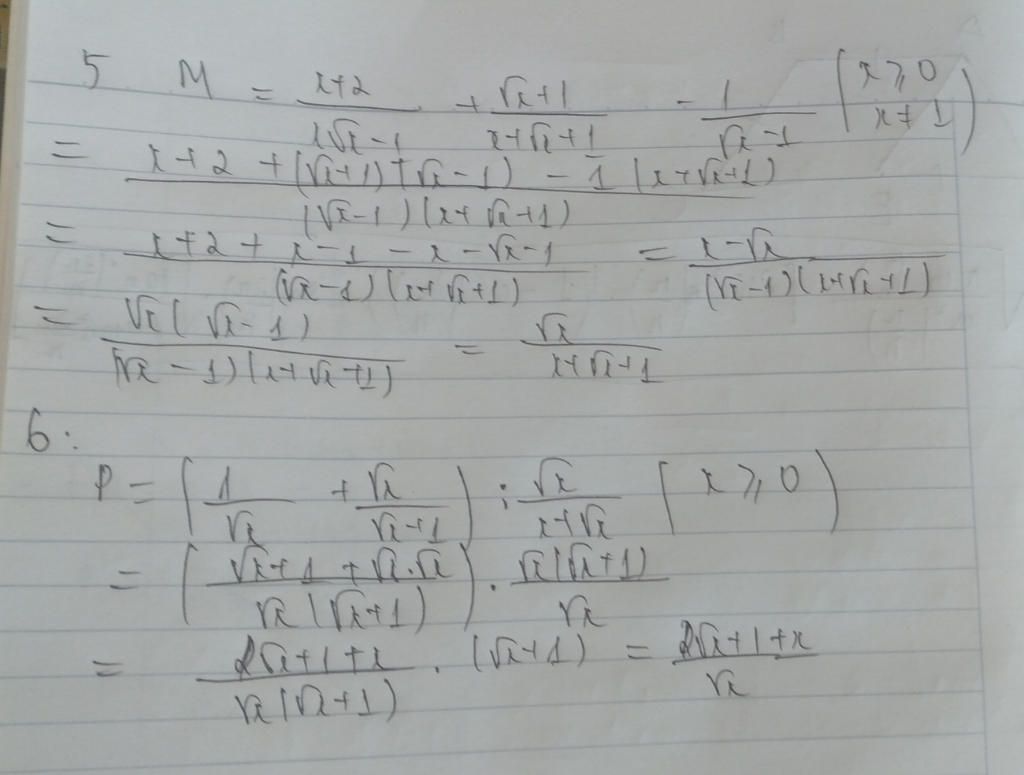 5 M = (x+2)/(x√x-1) + (√x+1)/(x+√x+1) - 1/(√x-1) (x⩾0 x≠1)
= (x+2+(√x+1)(√x-1) - 1(x+√x+1))/((√x-1)(x+√x+1))
= (x+2+x-1-x-√x-1)/((√x-1)(x+√x+1)) = (x-√x)/((√x-1)(x+√x+1))
= (√x(√x-1))/((√x-1)(x+√x+1)) = √x/(x+√x+1)
6:
P = (1/√x + √x/(√x+1)) : √x/(x+√x) (x⩾0)
= ((√x+1+√x.√x)/(√x(√x+1))) . (√x(√x+1))/√x
= (√x+1+x)/(√x(√x+1)) . (√x+1) = (√x+1+x)/√x